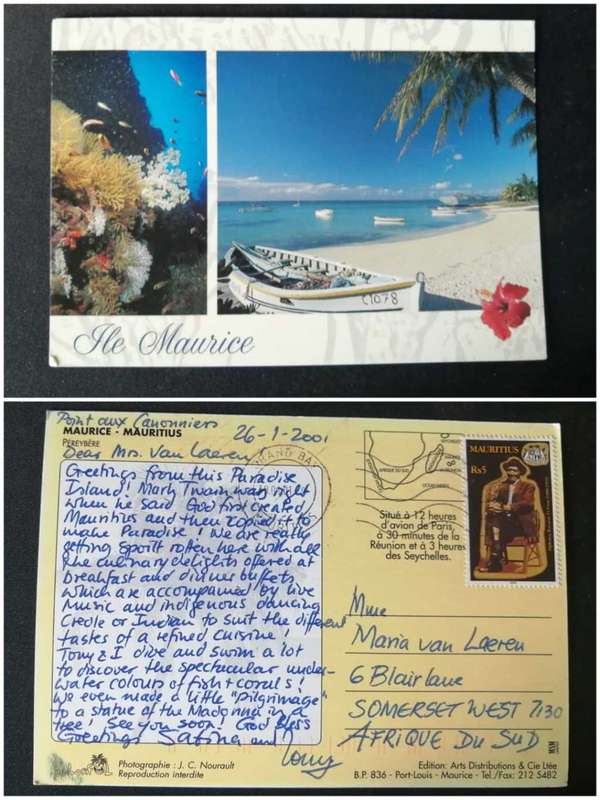 C1078
Ile Maurice
Point aux Canonniers
MAURICE - MAURITIUS
PEREYBÈRE
26-1-2001
Dear Mrs. Van Laeren
Greetings from this Paradise
Island! Mark Twain was right
when he said God first created
Mauritius and then copied it to
make Paradise! We are really
getting spoilt rotten here with all
the culinary delights offered at
breakfast and dinner buffets
which are accompanied by live
Music and indigenous dancing
Creole or Indian to suit the different
tastes of a refined cuisine!
Tony & I dive and swim a lot
to discover the spectacular under-
water colours of fish + corals!
We even made a little "pilgrimage"
to a statue of the Madonna in a
tree! See you soon God bless
Greetings Sabine and
Tony
GRAND BA
AFRIQUE DU SUD
OCEAN INDIEN
Situé à 12 heures
d'avion de Paris,
à 30 minutes de la
Réunion et à 3 heures
des Seychelles.
MAURITIUS
Rs5
Mme
Maria van Laeren
6 Blairlane
SOMERSET WEST 7130
AFRIQUE DU SUD
Photographie : J. C. Nourault
Reproduction interdite
Edition: Arts Distributions & Cie Ltée
B.P. 836 - Port-Louis - Maurice - Tel./Fax: 212 5482